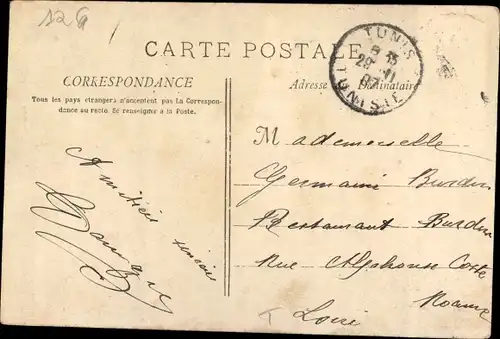 126
CARTE POSTALE
TUNIS
8 15
29 11
07
TUNISIE
CORRESPONDANCE
Adresse du Destinataire
Tous les pays étrangers n'acceptent pas La Correspon-
dance au recto. Se renseigner à la Poste.
Mademoiselle
Germaine Burdin
Restaurant Burdin
Rue Alphonse Coste
Roanne
Loire
T
Amitiés sincères